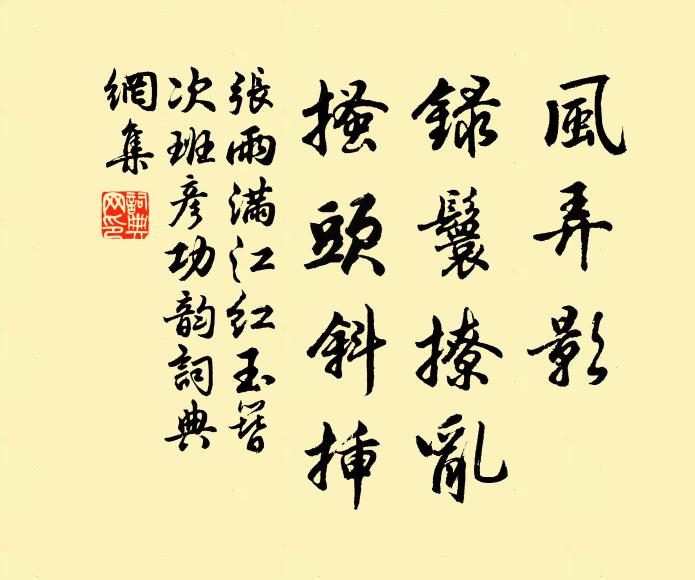 風弄影
錄鬟撩亂
搔頭斜挿
張雨滿江紅玉簪
次班彥功韵詞典
網集
詞典
网印